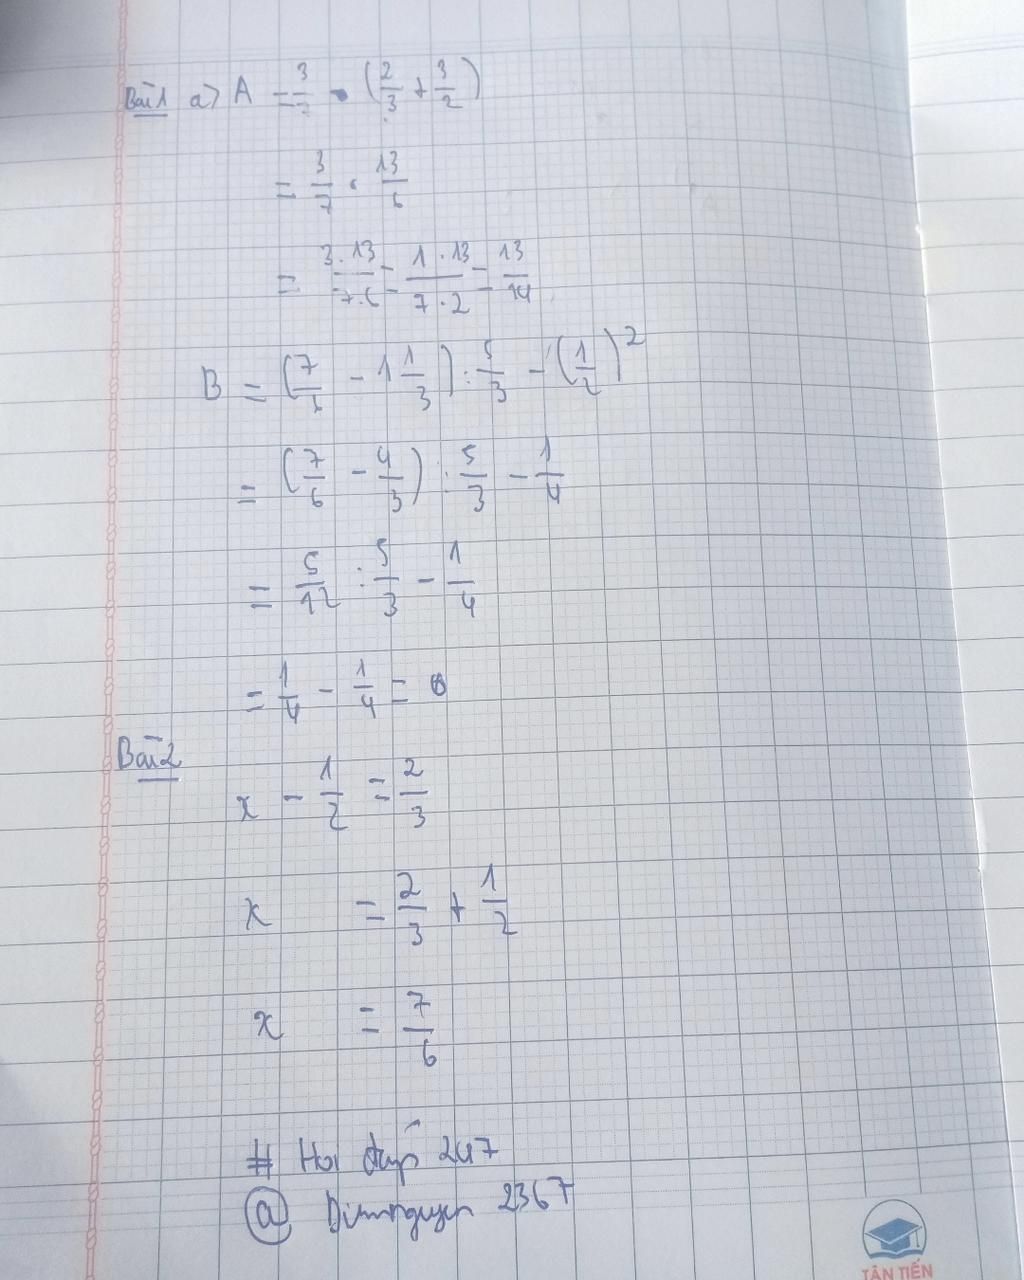 Bài 1 a) A = 3/7 . (2/3 + 3/2)
= 3/7 . 13/6
= 3.13/7.6 = 1.13/7.2 = 13/14
B = (7/6 - 1 1/3) : 5/3 - (1/2)²
= (7/6 - 4/3) : 5/3 - 1/4
= 5/12 : 5/3 - 1/4
= 1/4 - 1/4 = 0
Bài 2
x - 1/2 = 2/3
x = 2/3 + 1/2
x = 7/6
# Hoi đáp 247
@ Dumnguyen 2367
TÂN TIẾN